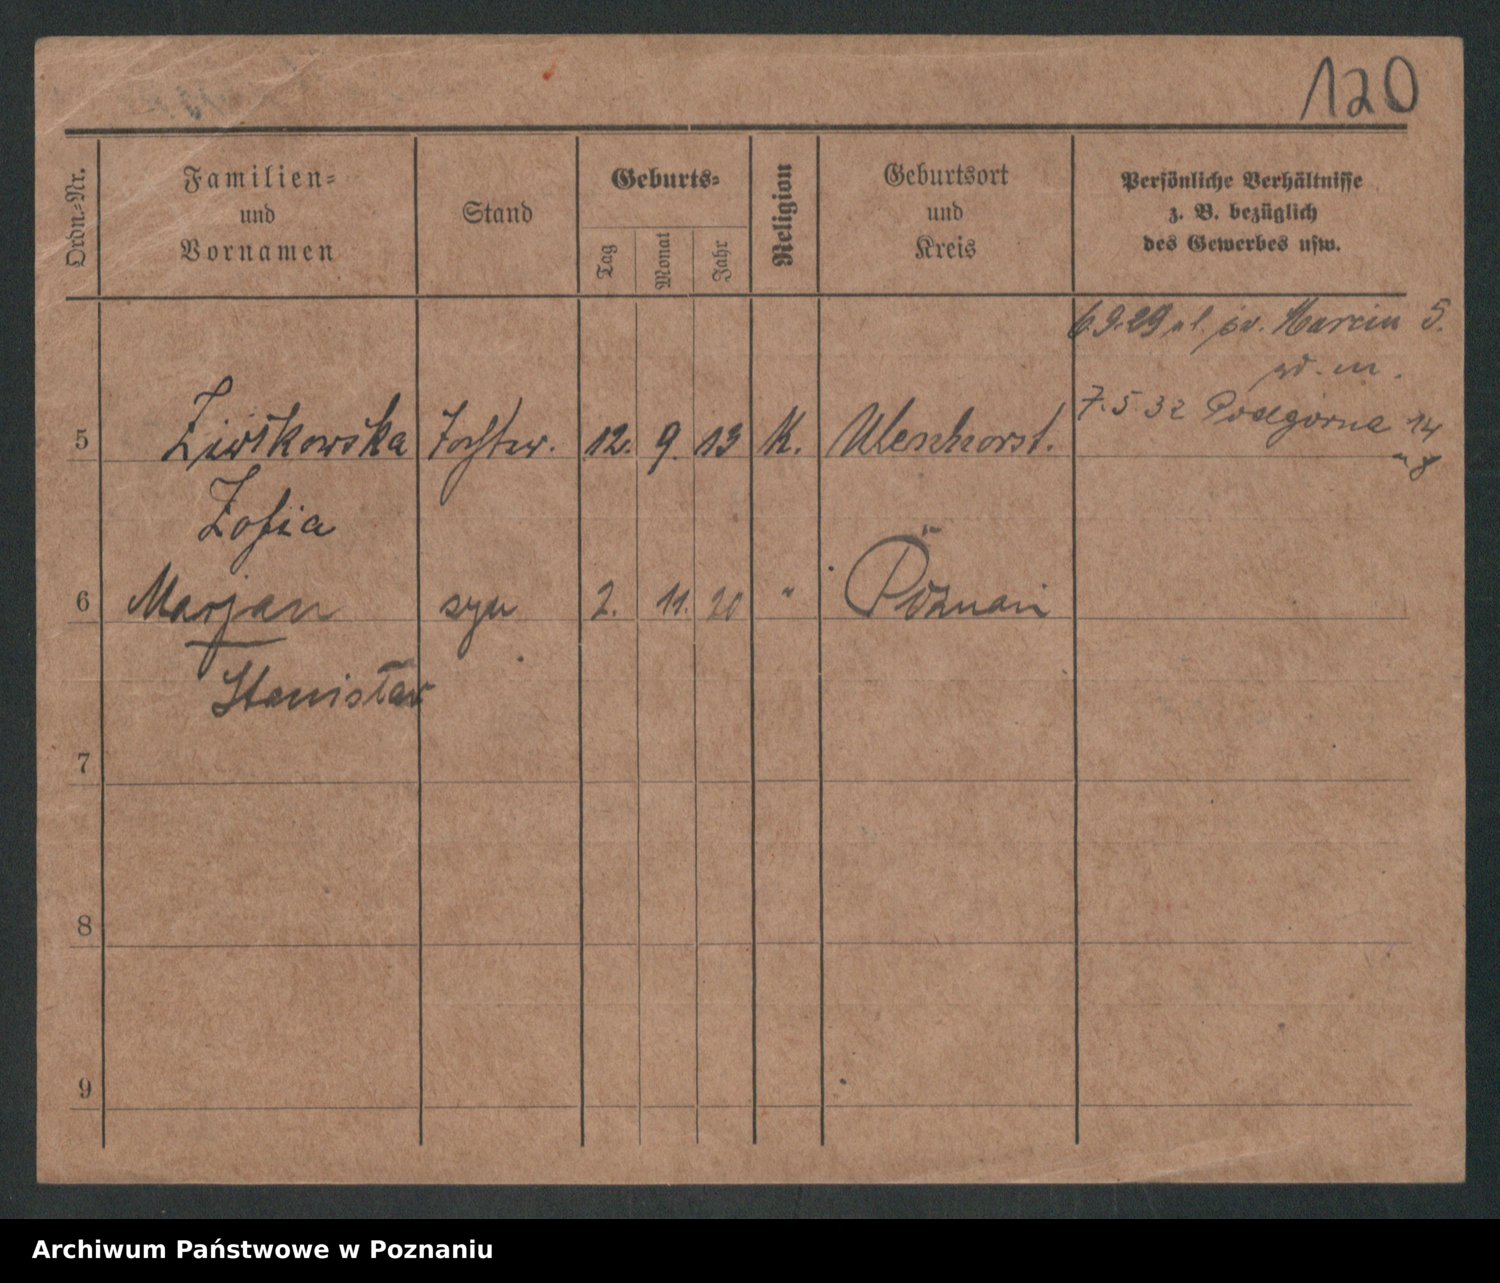 120
Ordn.-Nr.
Familien-
und
Vornamen
Stand
Geburts-
Tag
Monat
Jahr
Religion
Geburtsort
und
Kreis
Persönliche Verhältnisse
z. B. bezüglich
des Gewerbes usw.
6.9.29 ul. św. Marcin 5.
7.5.32 Podgórna 14
5 Ziółkowska Tochter. 12. 9. 13 K. Ulenhorst.
Zofia
6 Marjan syn 2. 11. 20 " Poznań
Stanisław
7
8
9
Archiwum Państwowe w Poznaniu